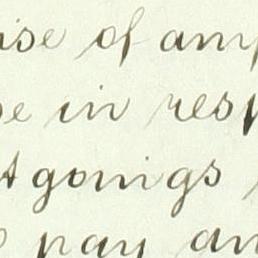 ise of any
se in resp
tgoings
pay an